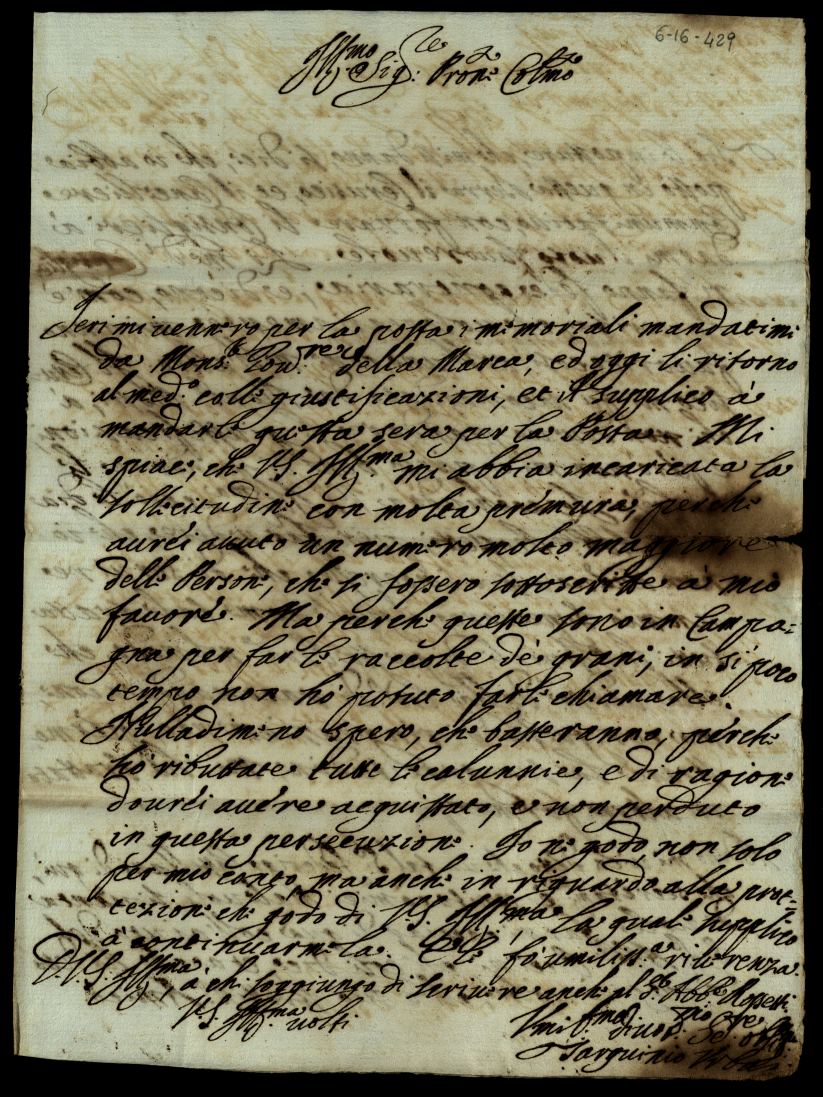 6-16-429
Ill.mo Sig.re Pron.e Col.mo
Ieri mi vennero per la posta i memoriali mandatimi
da Mons.r Gov.re della Marca, ed oggi li ritorno
al med.o colle giustificazioni, et il supplico à
mandarle questa sera per la Posta. Mi
spiace, che V.S. Ill.ma mi abbia incaricata la
sollecitudine con molta premura, perche
aurei auuto un numero molto maggiore
delle Persone, che si fossero sottoscritte à mio
fauore. Ma perche queste sono in Campa=
gna per far le raccolte de grani, in sì poco
tempo non hò potuto farle chiamare.
Nulladimeno spero, che basteranno, perche
hò ributtate tutte le calunnie, e di ragione
dourei auere acquistato, e non perduto
in questa persecuzione. Io ne godo, non solo
per mio conto, ma anche in riguardo alla prot=
tezione che godo di V.S. Ill.ma, la quale supplico
a continuarmela. E le fò umiliss.a riuerenza
D.V.S. Ill.ma, à che soggiungo di scriuere anche al S.r Abb.e
V.S. Ill.ma volti
Vmil.mo diuot.mo Se.re obl.
Tarquinio